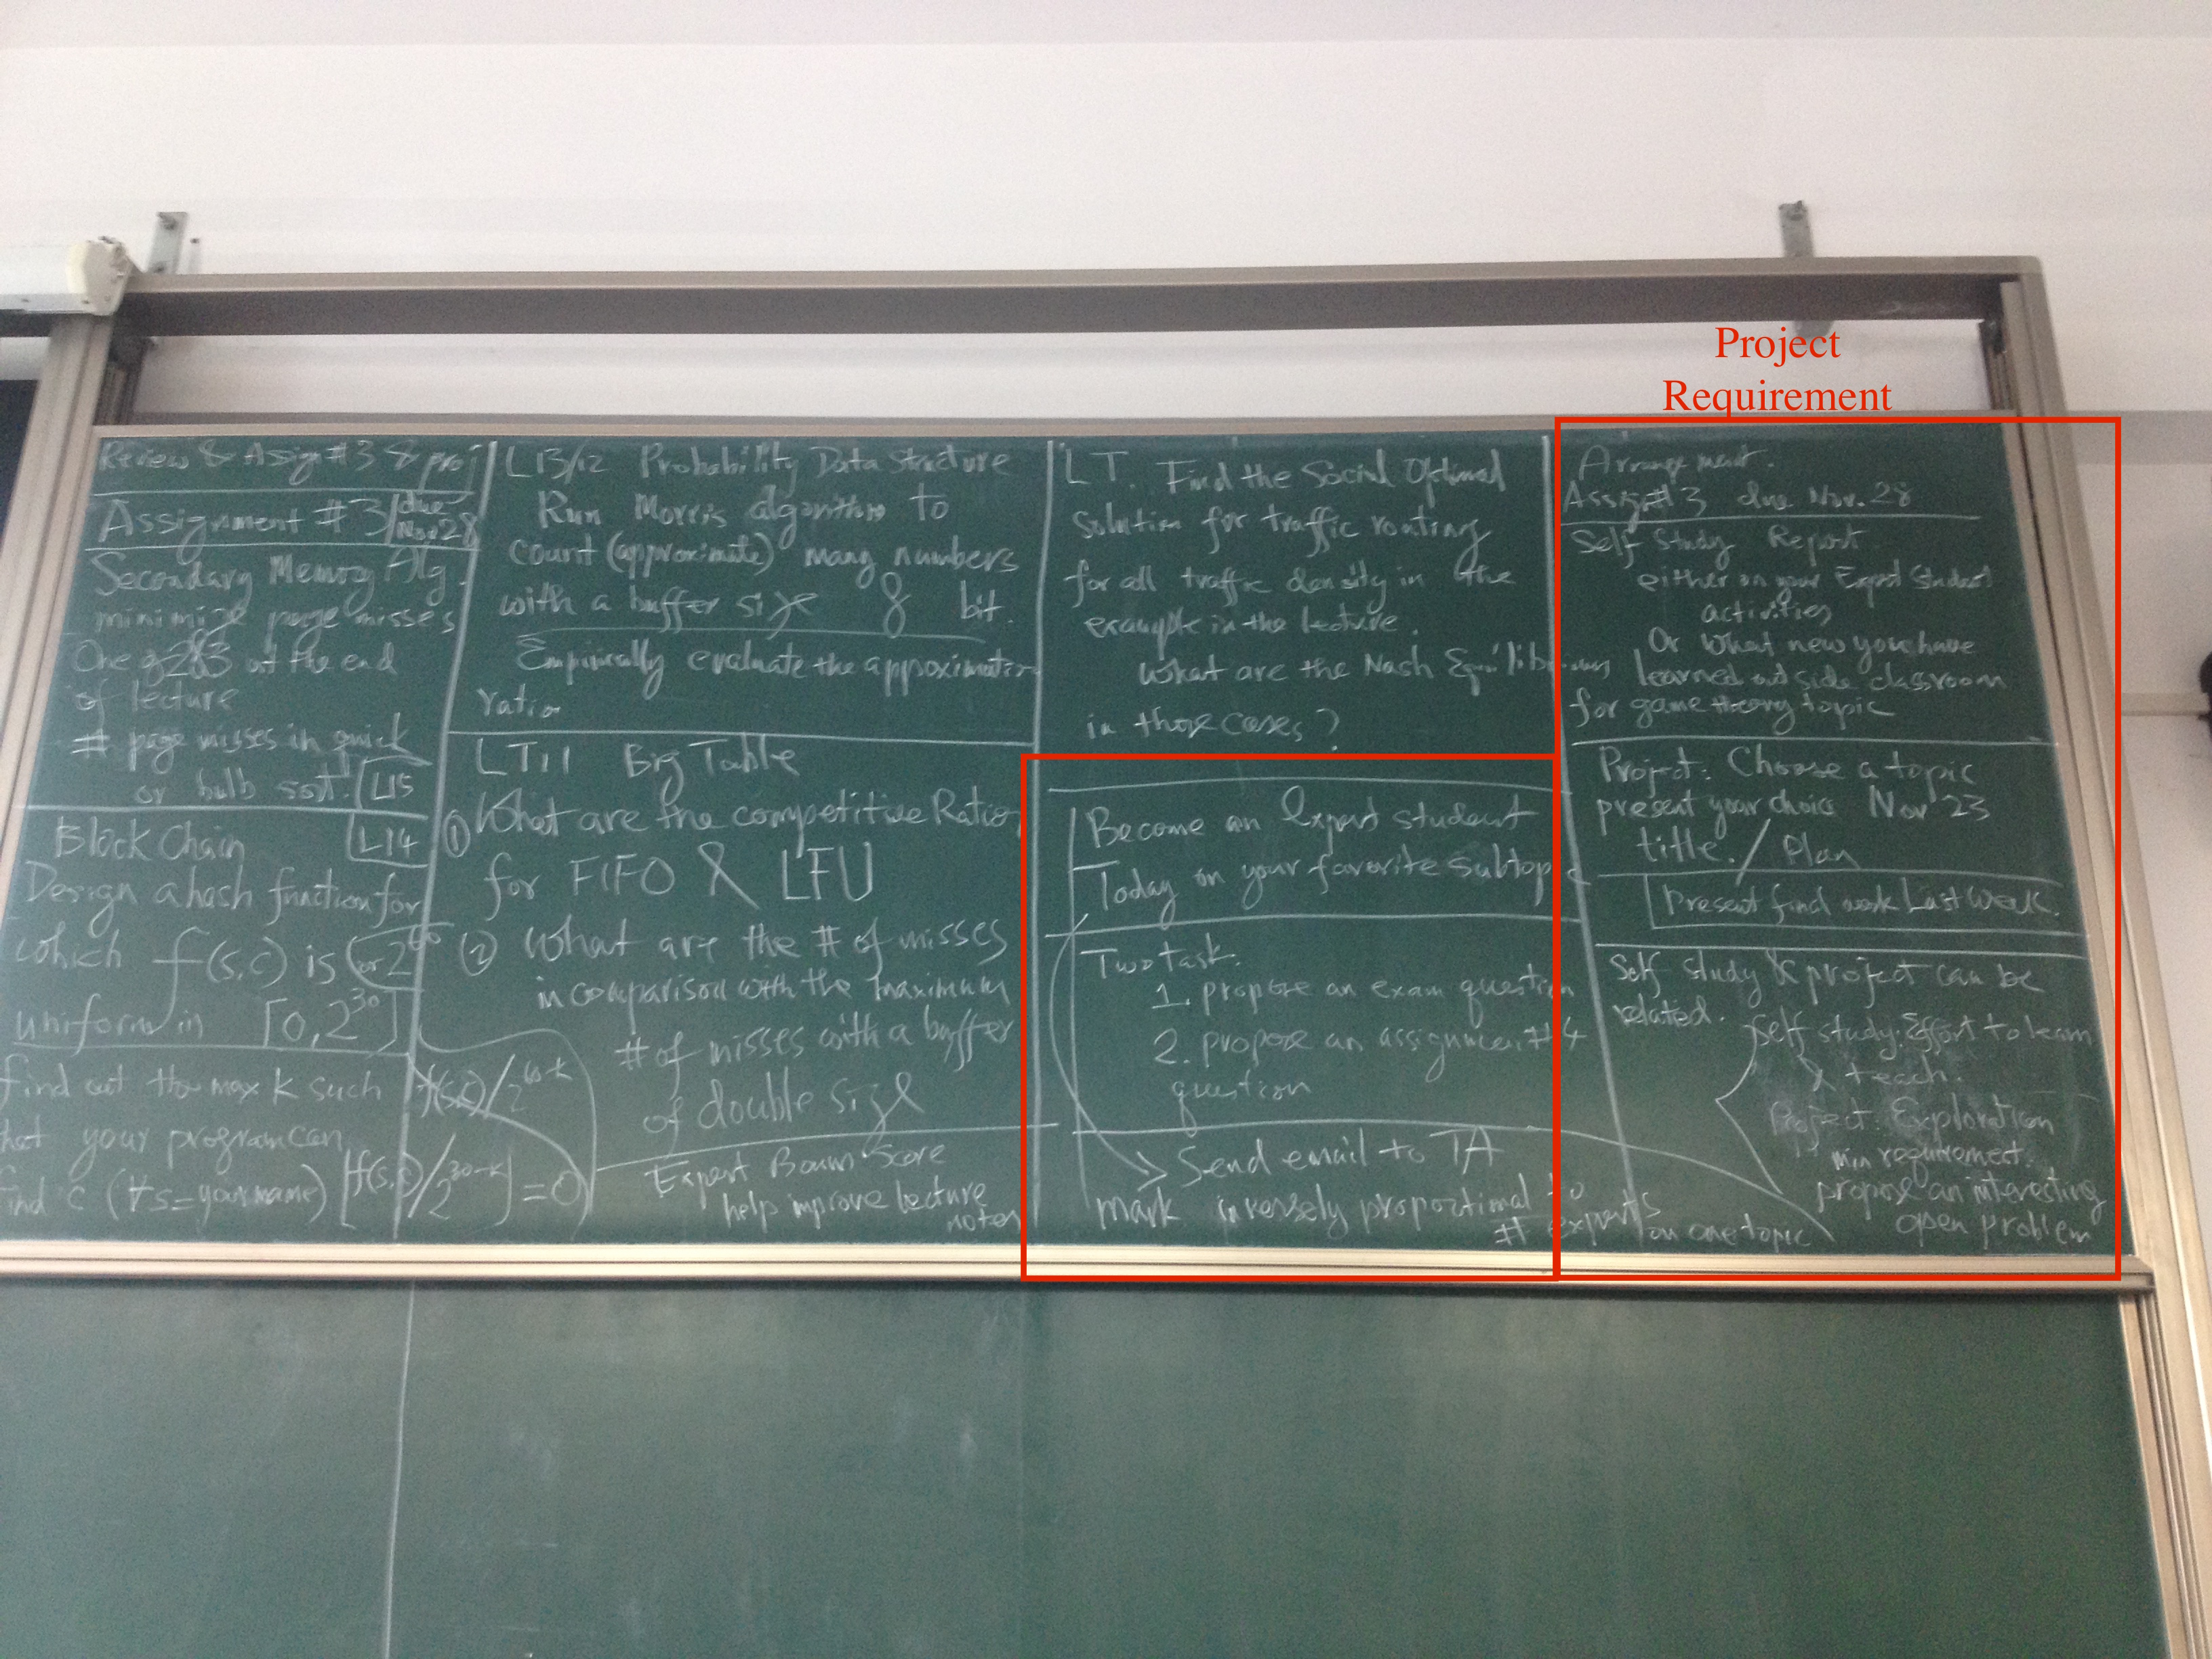 Project
Requirement
Review & Assig #3 & proj
Assignment #3 / due
Nov 28
Secondary Memory Alg.
minimize page misses
One of 2&3 at the end
of lecture
# page misses in quick
or bulb sort. L15
Block Chain L14
Design a hash function for
which f(s,c) is or 2^60
uniform in [0, 2^30]
find out the max k such
that your program can
find c (∀s=your name) [f(s,c)/2^30-k] = 0
f(s,c)/2^60-k
L13/12 Probability Data Structure
Run Morris algorithm to
count (approximate) many numbers
with a buffer size 8 bit.
Empirically evaluate the approximation
ratio
LT11 Big Table
① What are the competitive Ratio
for FIFO & LFU
② What are the # of misses
in comparison with the maximum
# of misses with a buffer
of double size
Expert Score
help improve lecture
notes
LT. Find the Social Optimal
solution for traffic routing
for all traffic density in the
example in the lecture.
What are the Nash Equilibriums
in those cases?
Become an Expert student
Today on your favorite subtopic
Two task.
1. propose an exam question
2. propose an assignment #4
question
Send email to TA
mark inversely proportimal to
# experts
on one topic
Arrangement.
Assig#3 due Nov. 28
Self Study Report.
either on your Expert Student
activities
Or What new you have
learned outside classroom
for game theory topic
Project: Choose a topic
present your choice Nov 23
title. / Plan
Present find work Last Week.
Self study & project can be
related.
Self study: Effort to learn
& teach.
Project: Exploration
min requirement:
propose an interesting
open problem